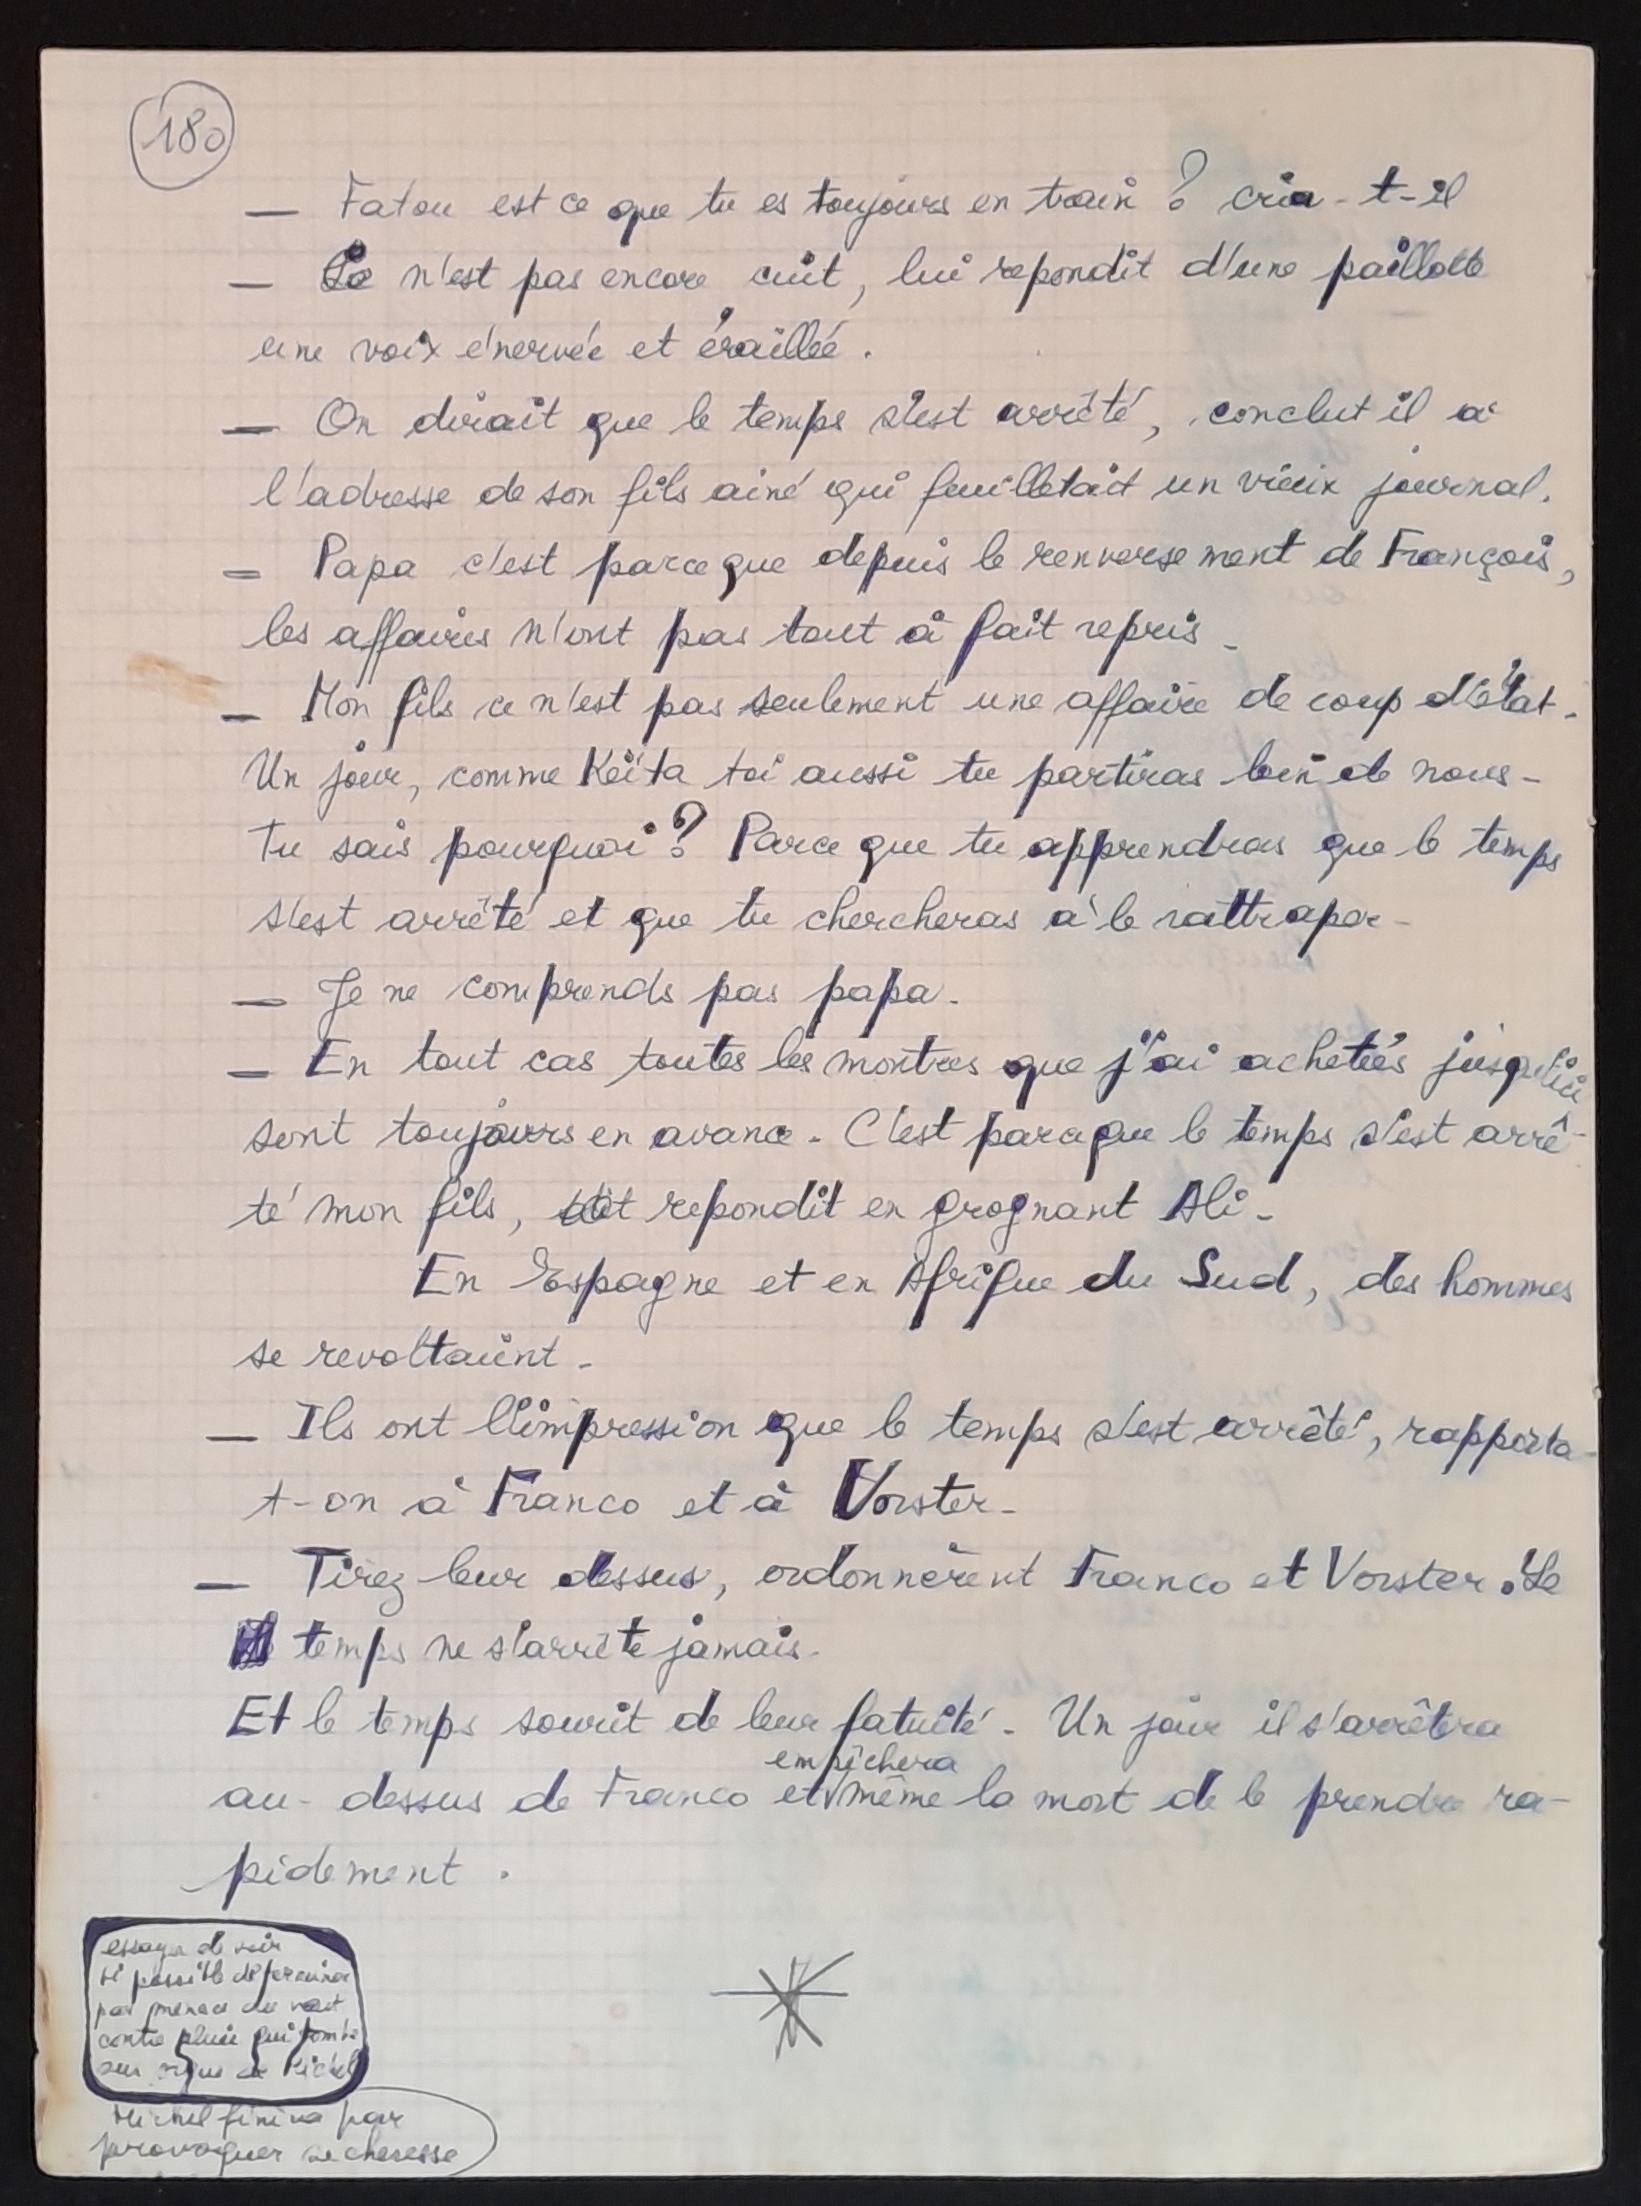 180
— Fatou est ce que tu es toujours en train ? cria-t-il
— Ce n'est pas encore cuit, lui repondit d'une paillotte
une voix énervée et éraillée.
— On dirait que le temps s'est arrêté, conclut il à
l'adresse de son fils ainé qui feuilletait un vieux journal.
— Papa c'est parce que depuis le renversement de François,
les affaires n'ont pas tout à fait repris.
— Mon fils ce n'est pas seulement une affaire de coup d'état.
Un jour, comme Keïta toi aussi tu partiras loin de nous.
Tu sais pourquoi ? Parce que tu apprendras que le temps
s'est arrêté et que tu chercheras à le rattraper.
— Je ne comprends pas papa.
— En tout cas toutes les montres que j'ai achetées jusqu'ici
sont toujours en avance. C'est parce que le temps s'est arrê-
té mon fils, repondit en grognant Ali.
En Espagne et en Afrique du Sud, des hommes
se revoltaient.
— Ils ont l'impression que le temps s'est arrêté, rapporta-
t-on à Franco et à Vorster.
— Tirez leur dessus, ordonnèrent Franco et Vorster. Le
temps ne s'arrête jamais.
Et le temps sourit de leur fatuité. Un jour il s'arrêtera
au-dessus de Franco et empêchera même la mort de le prendre ra-
pidement.
essayer de voir
si possible de
par menace du vent
contre pluie qui tombe
sur de Michel
Michel finira par
provoquer secheresse